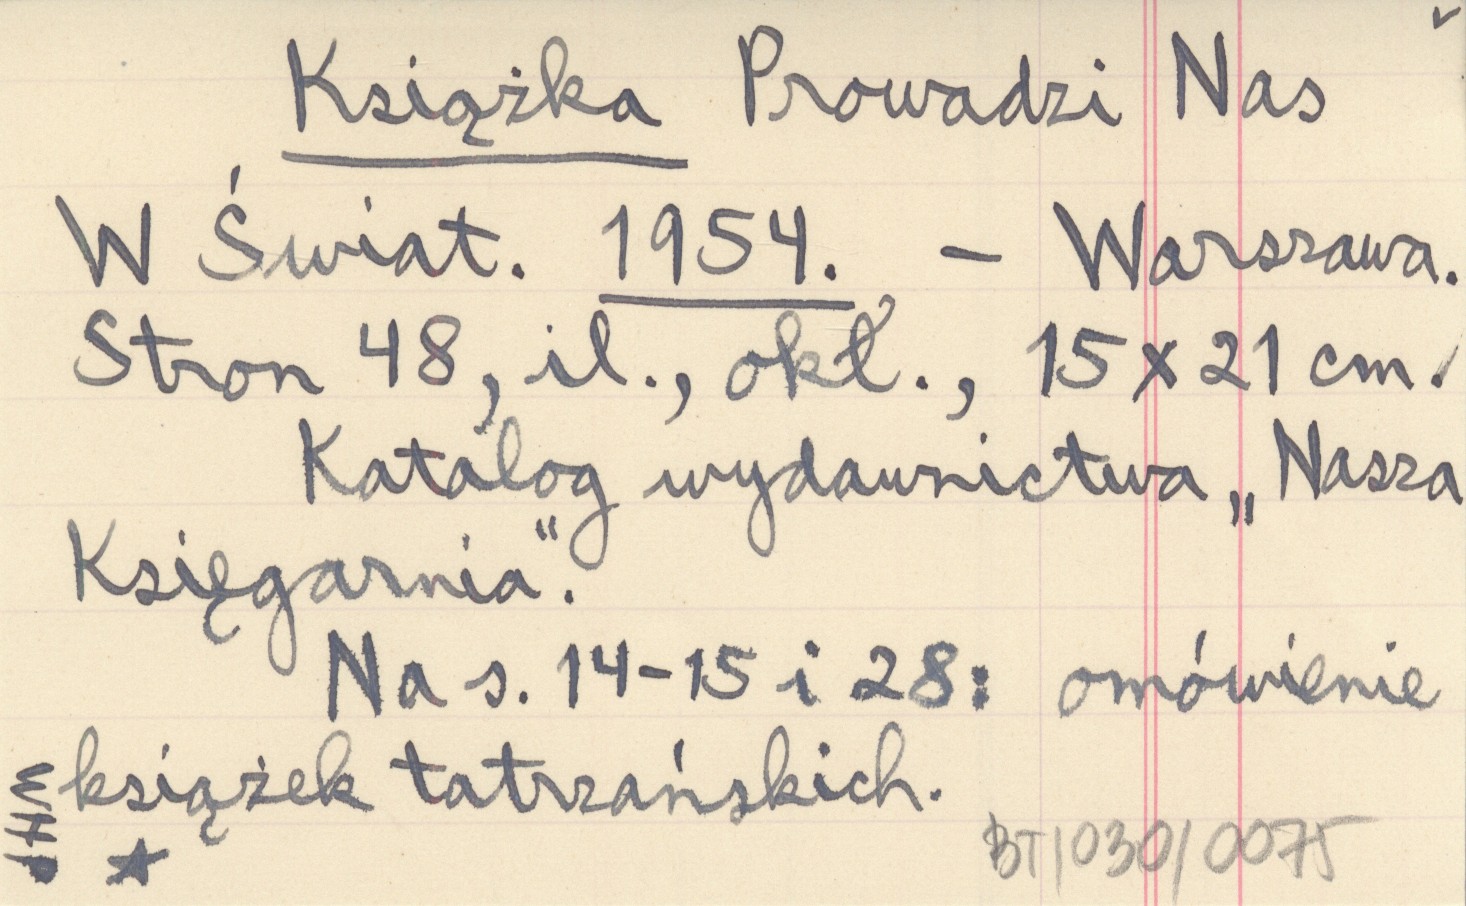 Książka Prowadzi Nas
W Świat. 1954. – Warszawa.
Stron 48, il., okł., 15 x 21 cm.
Katalog wydawnictwa „Nasza
Księgarnia".
Na s. 14-15 i 28: omówienie
książek tatrzańskich.
WHP
BT/030/0075